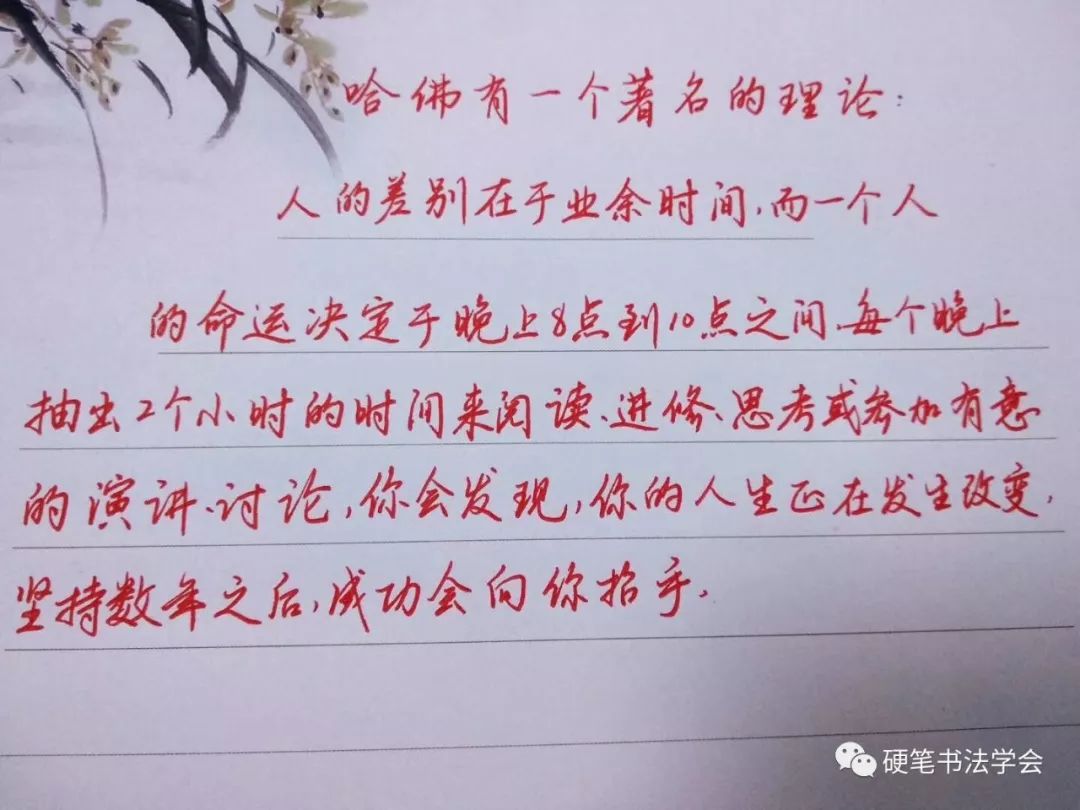 哈佛有一个著名的理论:
人的差别在于业余时间,而一个人
的命运决定于晚上8点到10点之间,每个晚上
抽出2个小时的时间来阅读、进修、思考或参加有意
的演讲、讨论,你会发现,你的人生正在发生改变,
坚持数年之后,成功会向你招手.
硬笔书法学会